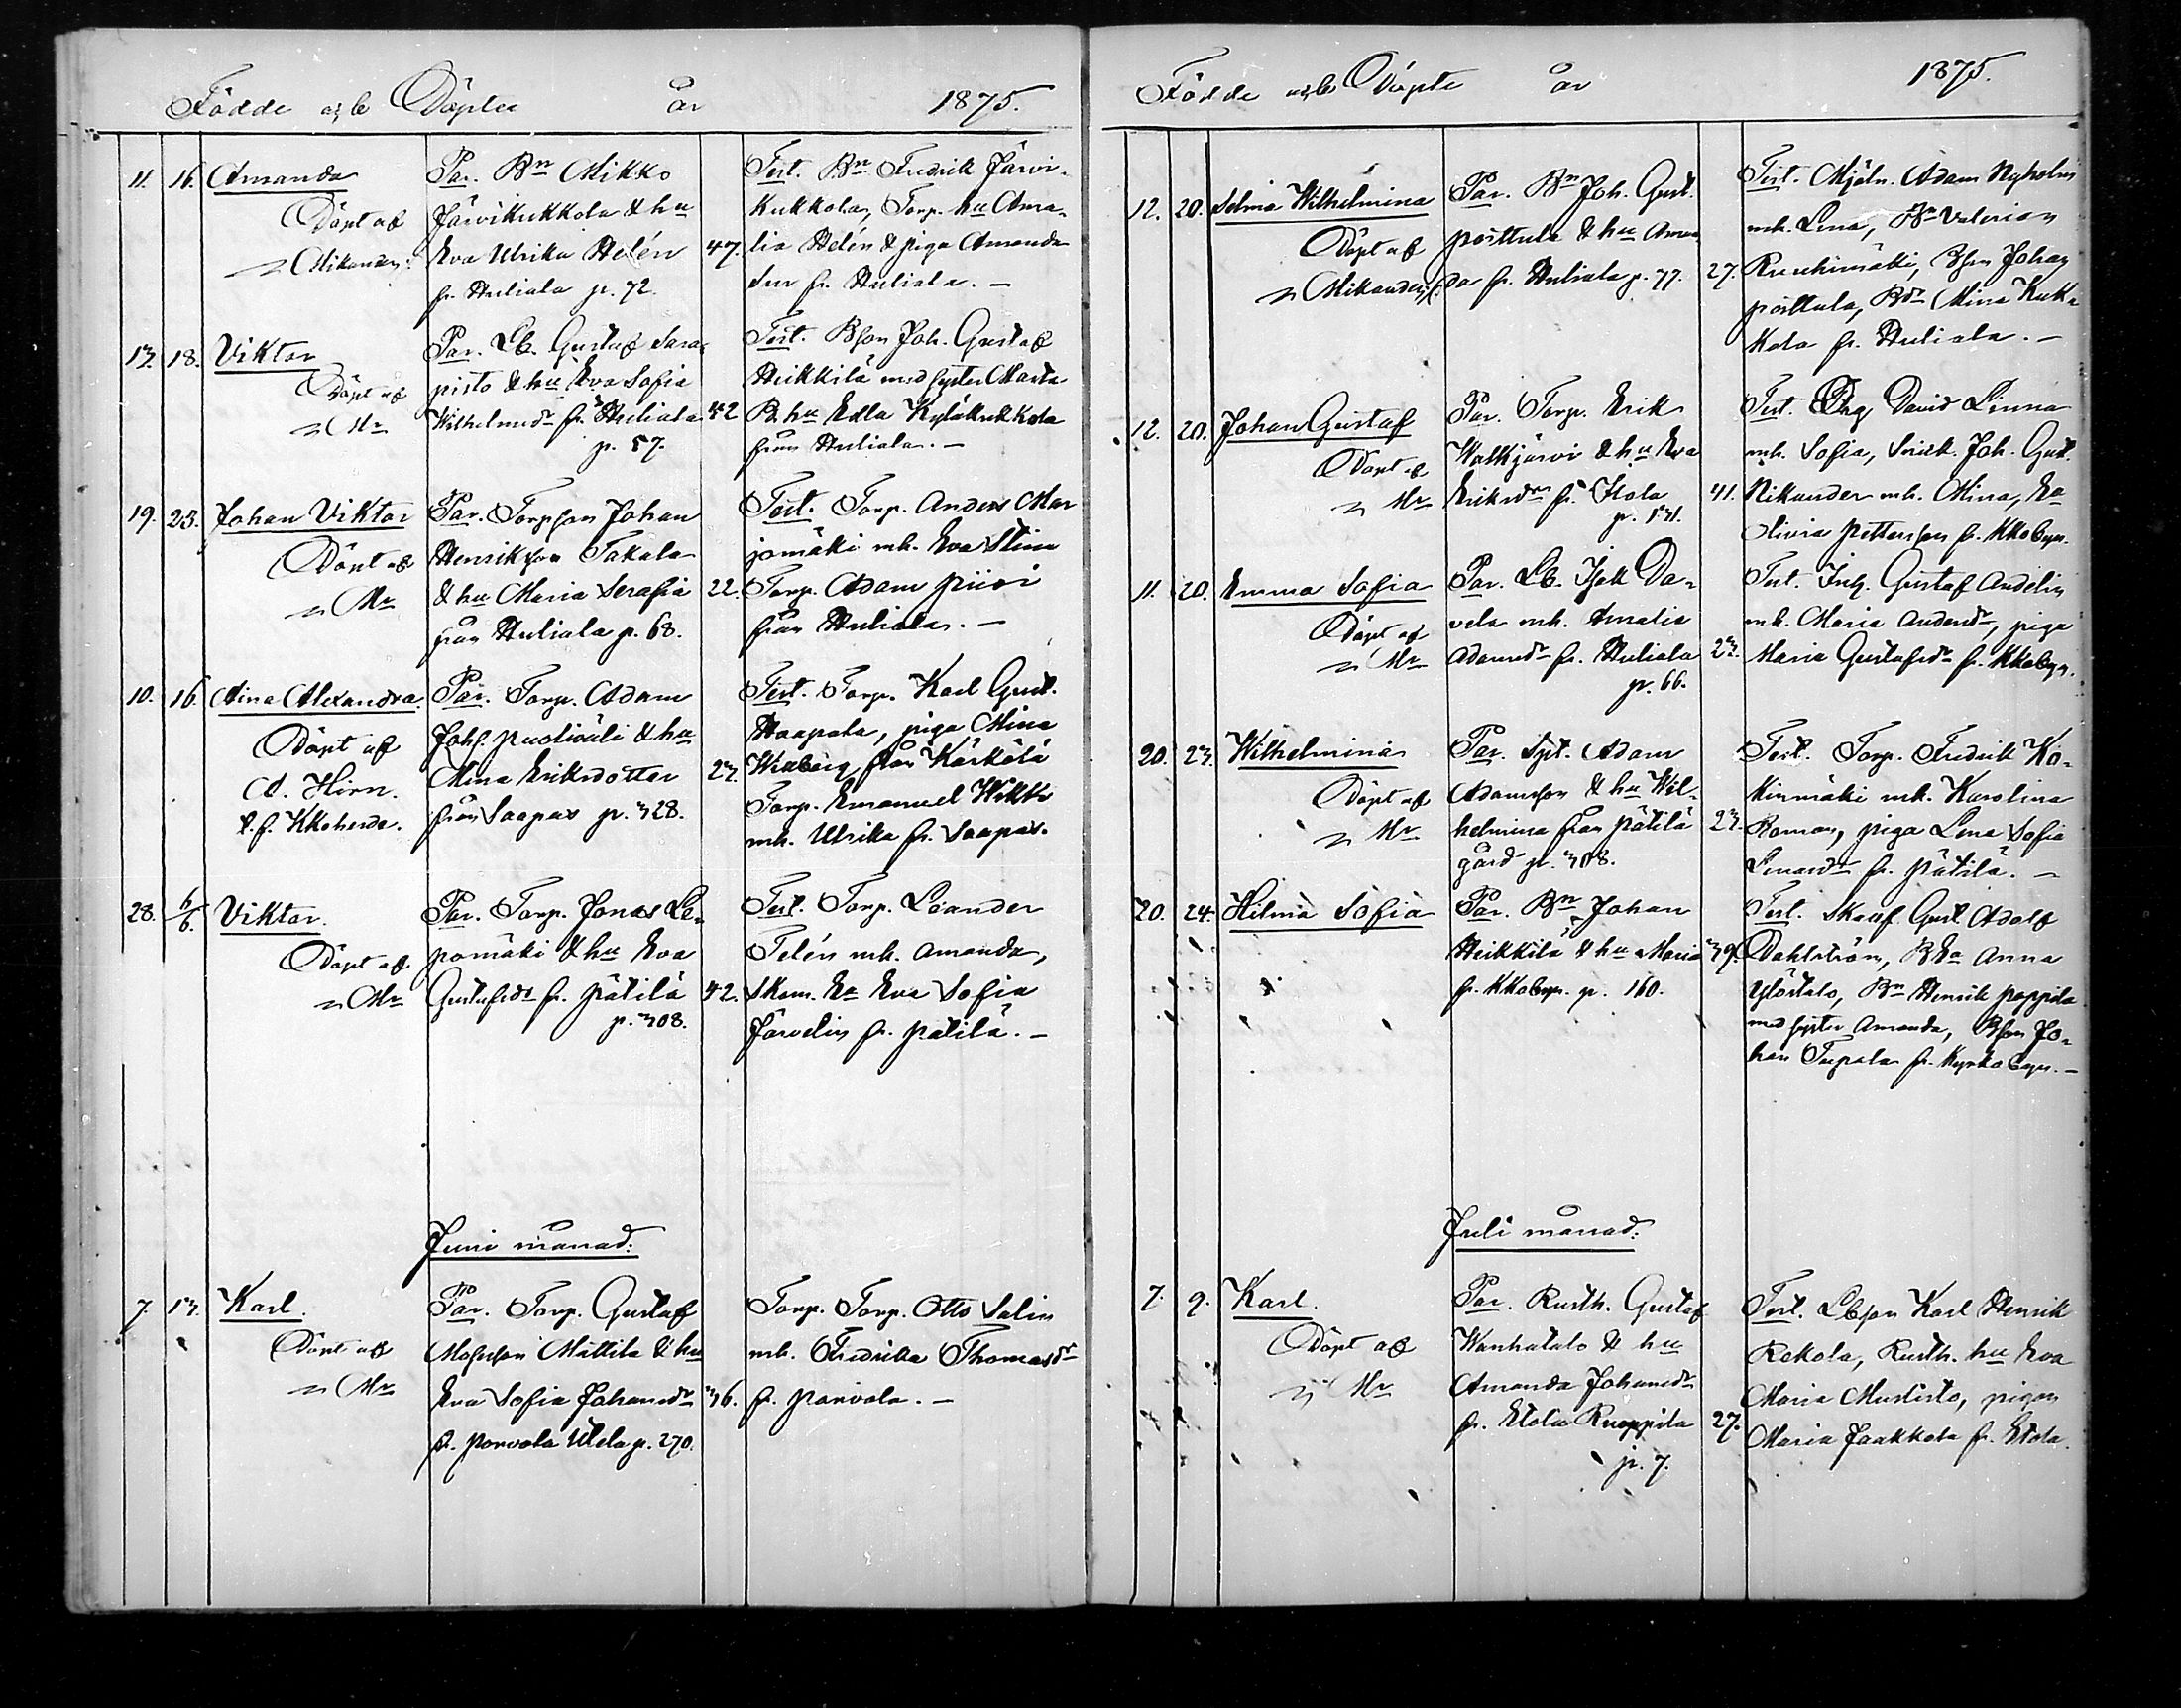 Födde och Döpte år 1875.
11. 16. Amanda
Döpt af
n Mikander.
Par. Bn Mikko
Järvikukkola & hu
Eva Ulrika Helén
fr. Huliala p. 72.
47.
Test. Bn Fredrik Järvi-
kukkola, Torp. hu Ama-
lia Helén & piga Amanda
fr. Huliala. –
13. 18. Viktor
Döpt af
n Mr
Par. Lb. Gustaf Sara-
pisto & hu Eva Sofia
Wilhelmsdr fr. Huliala
p. 57.
42
Test. Bson Joh. Gustaf
Heikkilä med syster Maria
B. hu Edla Kyläkukkola
från Huliala. –
19. 23. Johan Viktor
Döpt af
n Mr
Par. Torpson Johan
Henriksson Takala
& hu Maria Serafia
från Huliala p. 68.
22.
Test. Torp. Anders Mar
jomäki mh. Eva Stina
Torp. Adam Piiri
från Huliala. –
10. 16. Aina Alexandra.
Döpt af
A. Hirn.
t.f. Kkoherde.
Par. Torp. Adam
Johs. Puoliväli & hu
Mina Eriksdotter
från Saapas p. 328.
23.
Test. Torp. Karl Gust.
Haapala, piga Mina
från Kärkölä
Torp. Emanuel
mh. Ulrika fr. Saapas.
28. 6/6. Viktor.
Döpt af
n Mr
Par. Torp. Jonas Le-
pomäki & hu Eva
Gustafsdr fr. Pätilä
p. 308.
42.
Test. Torp. Leander
Telén mh. Amanda,
Skom. Ea Eva Sofia
Järvelin fr. Pätilä. –
Juni månad.
7. 13. Karl.
Döpt af
n Mr
Par. Torp. Gustaf
Mattila & hu
Eva Sofia Johansdr
fr. Porvola Utela p. 270.
36.
Torp. Torp. Otto Salin
mh. Fredrika Thomasdr
fr. Porvola. –
Födde och Döpte år 1875.
12. 20. Selma Wilhelmina
Döpt af
n Mikander.
Par. Bn Joh. Gust.
Pösttula & hu Aman
da fr. Huliala p. 77.
27.
Test. Mjöln. Adam Nyholm
mh. Lena, Bn Valerian
Ruuhimäki, Bson Johan
Pösttula, Bdr Mina Kuk-
kola fr. Huliala. –
12. 20. Johan Gustaf
Döpt af
n Mr
Par. Torp. Erik
Walkjärvi & hu Eva
Eriksdr fr. Itola
p. 131.
41.
Test. David Linna
mh. Sofia, Snick. Joh. Gust.
Nikander mh. Mina, Ea
Olivia Pettersson fr. Kkobyn.
11. 20. Emma Sofia
Döpt af
n Mr
Par. Lb. Isak Da-
vela mh. Amalia
Adamsdr fr. Huliala
p. 66.
23.
Test. Inh. Gustaf Andelin
mh. Maria Andersdr, piga
Maria Gustafsdr fr. Kkobyn.
20. 23. Wilhelmina
Döpt af
n Mr
Par. Syt. Adam
Adamsson & hu Wil-
helmina från Pätilä
gård p. 308.
23.
Test. Torp. Fredrik Ko-
kinmäki mh. Karolina
Roman, piga Lena Sofia
Lenardr fr. Pätilä. –
20. 24. Hilma Sofia
Par. Bn Johan
Heikkilä & hu Maria
fr. Kkobyn. p. 160.
39.
Test. Skarf. Gust. Adolf
Dahlström, BEa Anna
Ylöstalo, Bn Henrik Pappila
med syster Amanda, Bson Jo-
han Tupala fr. Kyrkobyn. –
Juli månad.
7. 9. Karl.
Döpt af
n Mr
Par. Rusth. Gustaf
Wanhatalo & hu
Amanda Johansdr
fr. Etola Ruoppila
p. 7.
27.
Test. Lbson Karl Henrik
Rekola, Rusth. hu Eva
Maria Mustisto, pigan
Maria Jaakkola fr. Etola.